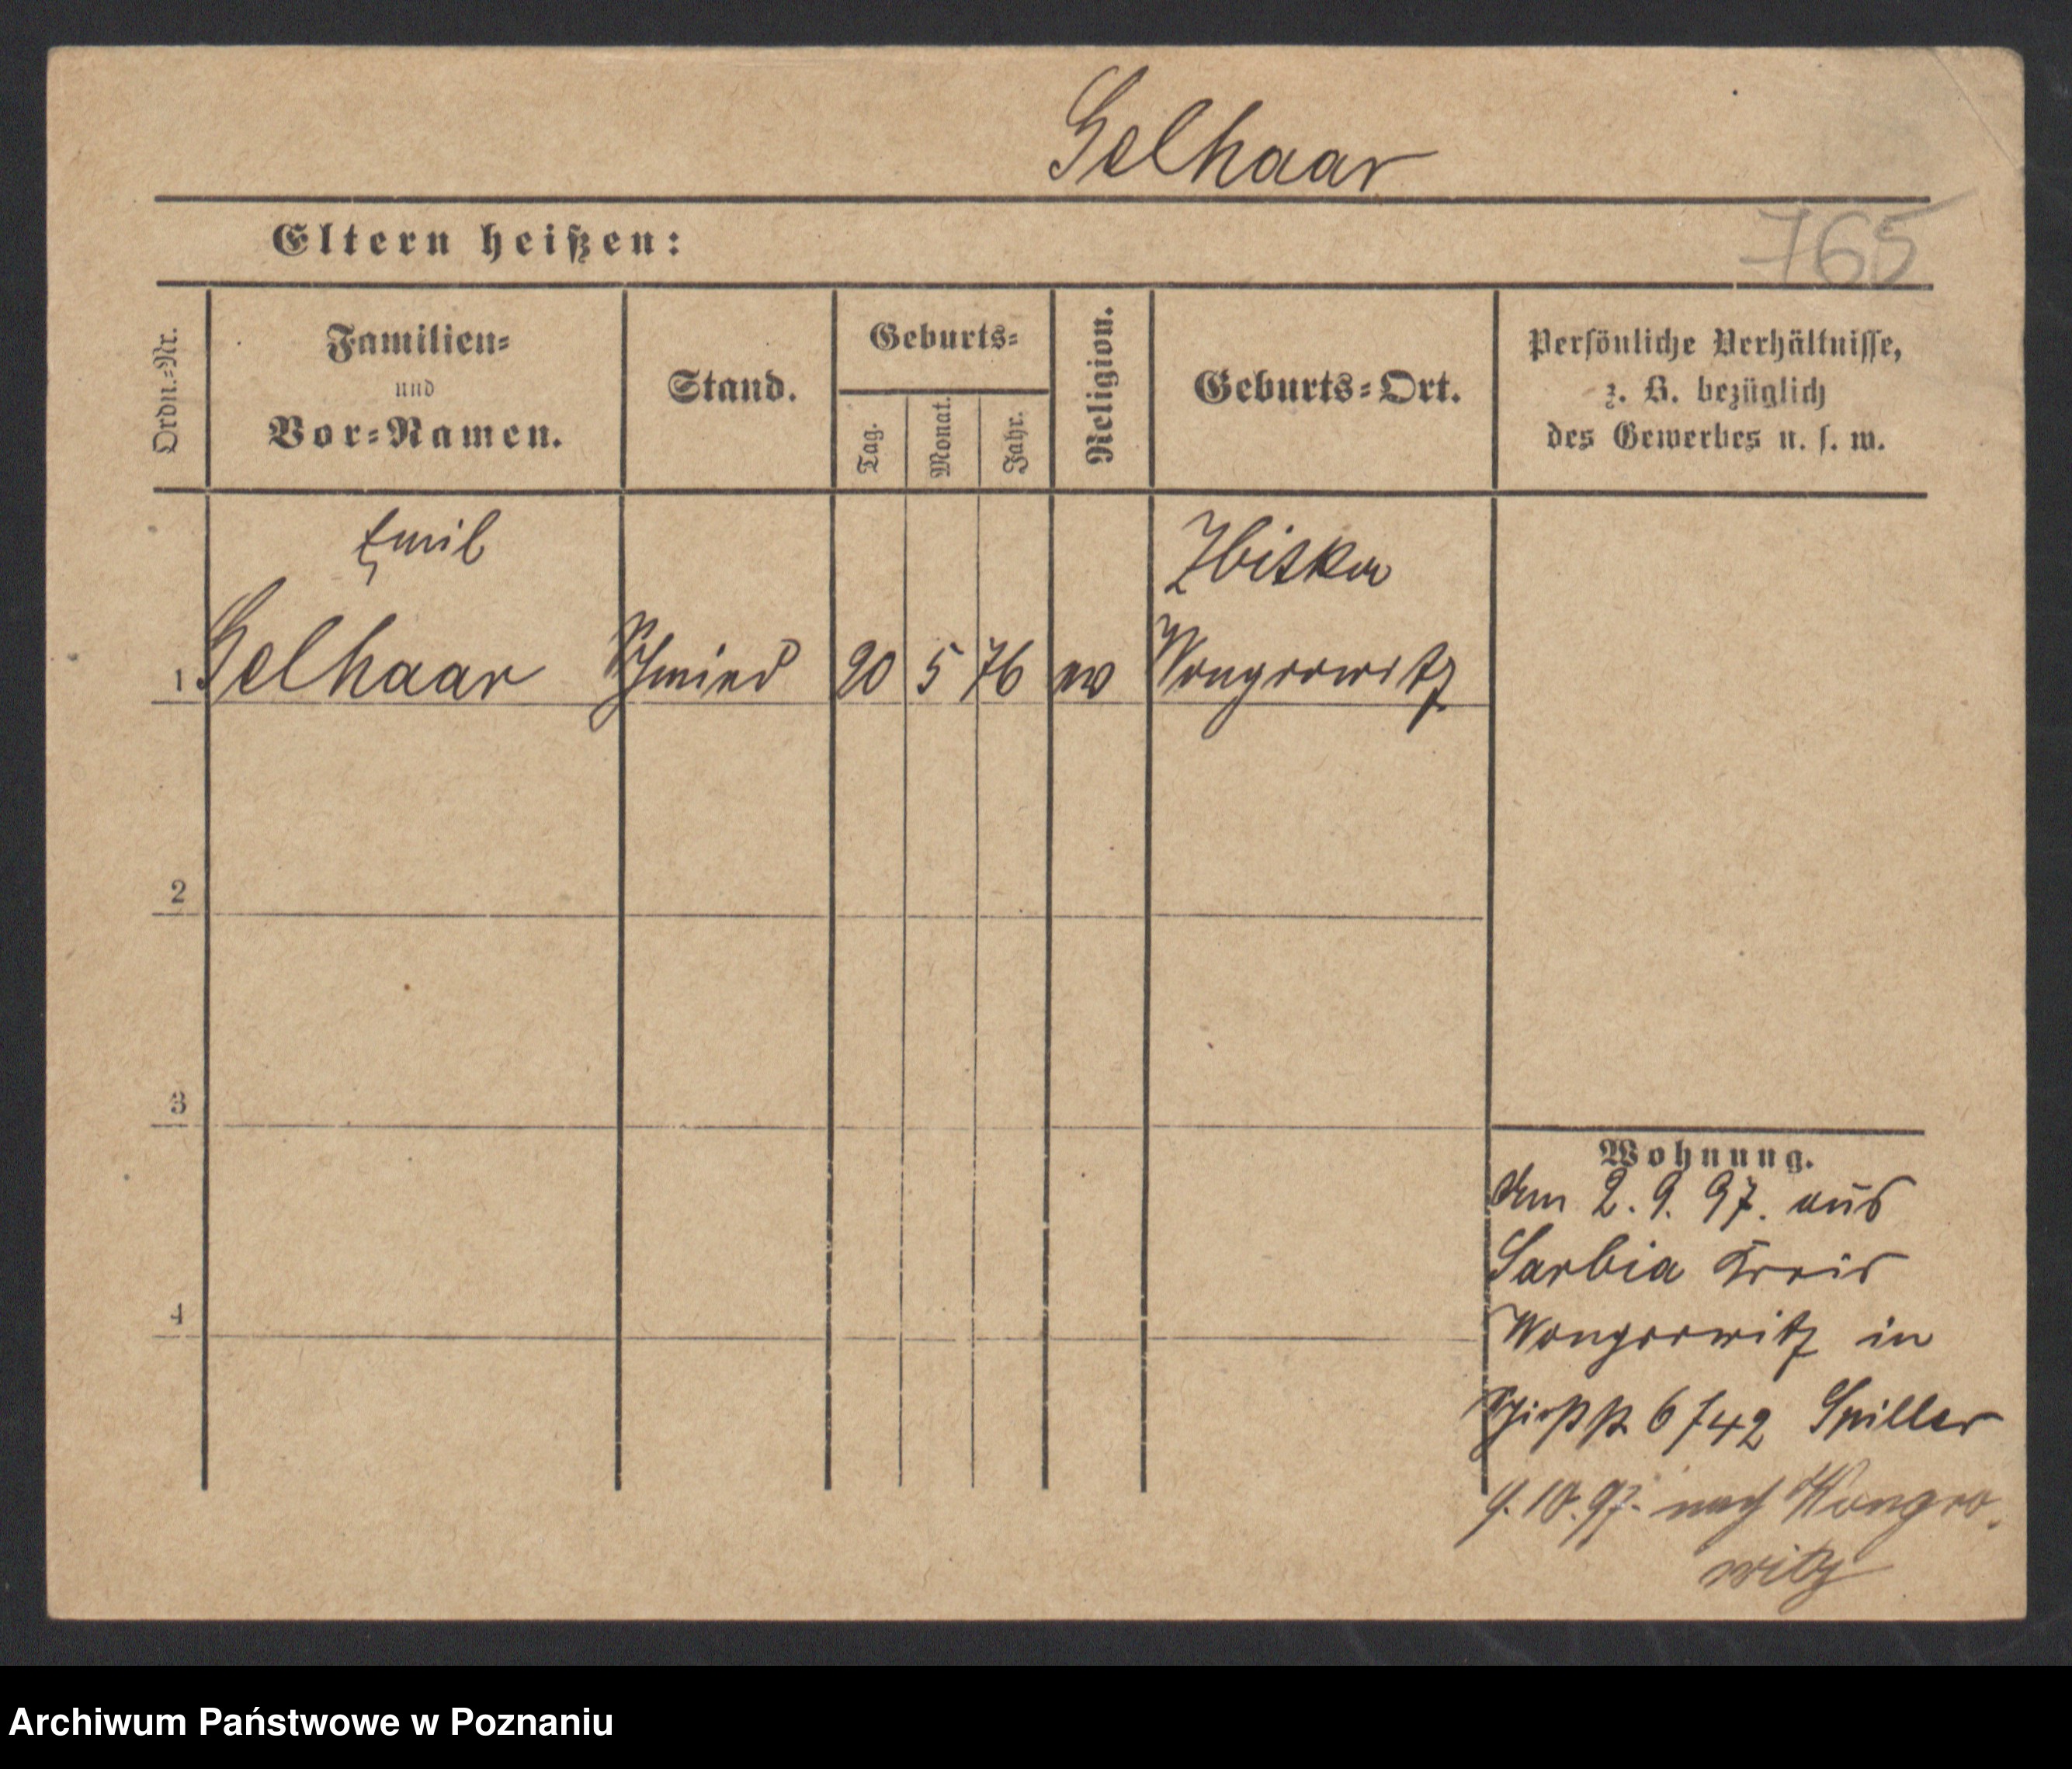 Gelhaar
765
Eltern heißen:
Ordn.-Nr.
Familien-
und
Vor-Namen.
Stand.
Geburts-
Tag.
Monat.
Jahr.
Religion.
Geburts-Ort.
Persönliche Verhältnisse,
z. B. bezüglich
des Gewerbes u. s. w.
Emil
Zbitka
1 Gelhaar Schmied 20 5 76 ev Wongrowitz
2
3
4
Wohnung.
2. 9. 97. aus
Sarbia Kreis
Wongrowitz in
6/42 Spiller
9. 10. 97. nach Wongro-
witz
Archiwum Państwowe w Poznaniu